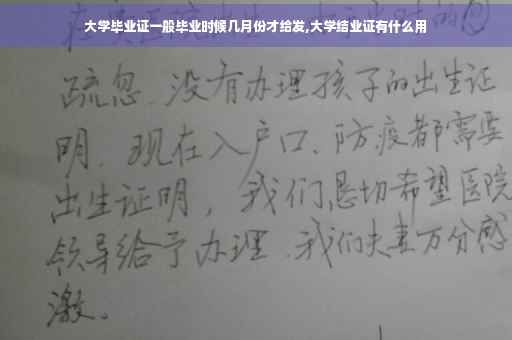 大学毕业证一般毕业时候几月份才给发,大学结业证有什么用
疏忽.没有办理孩子的出生证
明.现在入户口、防疫都需要
出生证明，我们恳切希望医院
领导给予办理.我们夫妻万分感
激。